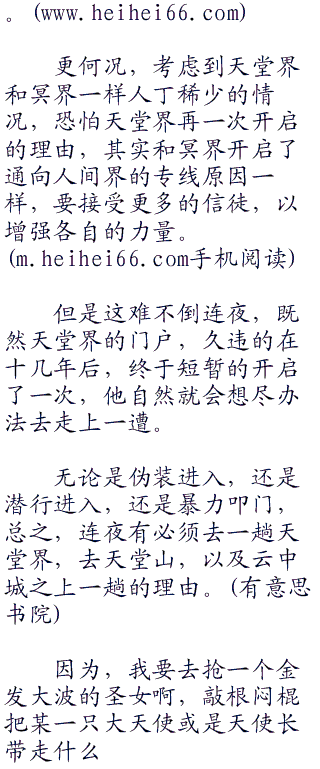 。(www.heihei66.com)
更何况，考虑到天堂界
和冥界一样人丁稀少的情
况，恐怕天堂界再一次开启
的理由，其实和冥界开启了
通向人间界的专线原因一
样，要接受更多的信徒，以
增强各自的力量。
(m.heihei66.com手机阅读)
但是这难不倒连夜，既
然天堂界的门户，久违的在
十几年后，终于短暂的开启
了一次，他自然就会想尽办
法去走上一遭。
无论是伪装进入，还是
潜行进入，还是暴力叩门，
总之，连夜有必须去一趟天
堂界，去天堂山，以及云中
城之上一趟的理由。(有意思
书院)
因为，我要去抢一个金
发大波的圣女啊，敲根闷棍
把某一只大天使或是天使长
带走什么